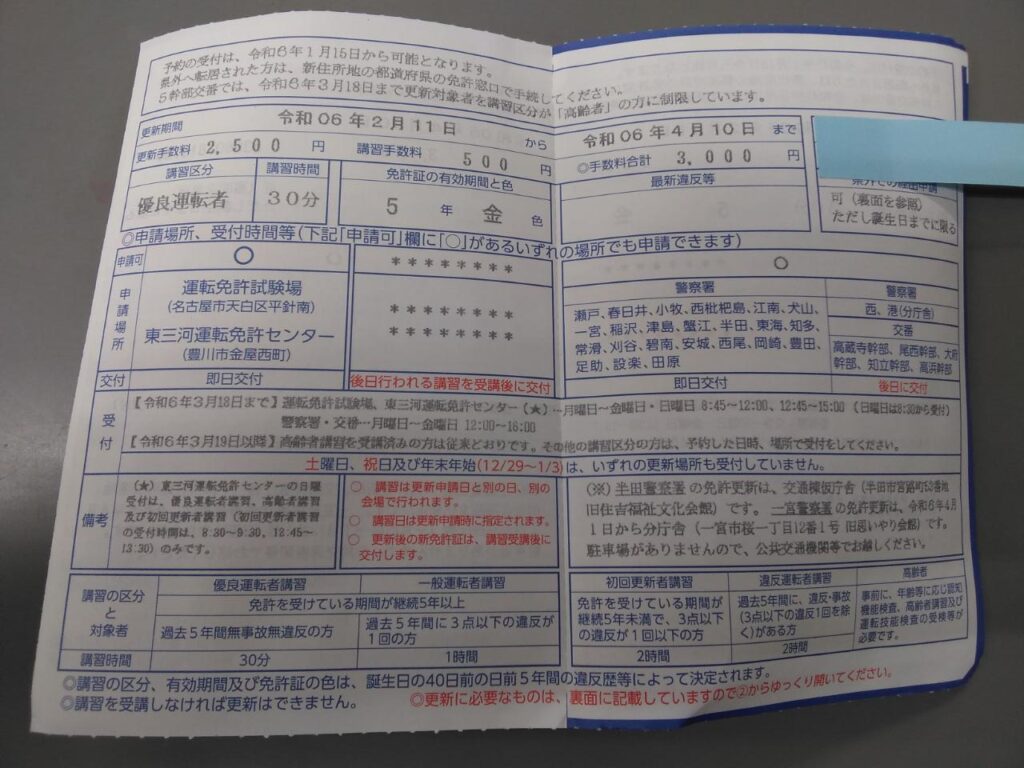 予約の受付は、令和6年1月15日から可能となります。
県外へ転居された方は、新住所地の都道府県の免許窓口で手続してください。
5幹部交番では、令和6年3月18日まで更新対象者を講習区分が「高齢者」の方に制限しています。
更新期間 令和06年2月11日 から 令和06年4月10日 まで
更新手数料 2,500 円 講習手数料 500 円 ◎手数料合計 3,000 円
講習区分 講習時間 免許証の有効期間と色 最新違反等
優良運転者 30分 5 年 金 色
可(裏面を参照)
ただし誕生日までに限る
◎申請場所、受付時間等(下記「申請可」欄に「○」があるいずれの場所でも申請できます)
申請可 ○ ******** ○
申請場所
運転免許試験場
(名古屋市天白区平針南)
東三河運転免許センター
(豊川市金屋西町)
********
********
警察署
瀬戸、春日井、小牧、西枇杷島、江南、犬山、
一宮、稲沢、津島、蟹江、半田、東海、知多、
常滑、刈谷、碧南、安城、西尾、岡崎、豊田、
足助、設楽、田原
警察署
西、港(分庁舎)
交番
高蔵寺幹部、尾西幹部、大府
幹部、知立幹部、高浜幹部
交付 即日交付 後日行われる講習を受講後に交付 即日交付 後日に交付
受付
【令和6年3月18日まで】運転免許試験場、東三河運転免許センター(★)…月曜日~金曜日・日曜日 8:45~12:00、12:45~15:00(日曜日は8:30から受付)
警察署・交番…月曜日~金曜日 12:00~16:00
【令和6年3月19日以降】高齢者講習を受講済みの方は従来どおりです。その他の講習区分の方は、予約した日時、場所で受付をしてください。
土曜日、祝日及び年末年始(12/29~1/3)は、いずれの更新場所も受付していません。
備考
(★)東三河運転免許センターの日曜
受付は、優良運転者講習、高齢者講習
及び初回更新者講習(初回更新者講習
の受付時間は、8:30~9:30、12:45~
13:30)のみです。
○ 講習は更新申請日と別の日、別の
会場で行われます。
○ 講習日は更新申請時に指定されます。
○ 更新後の新免許証は、講習受講後に
交付します。
(※)半田警察署の免許更新は、交通棟仮庁舎(半田市宮路町52番地
旧住吉福祉文化会館)です。一宮警察署の免許更新は、令和6年4月
1日から分庁舎(一宮市桜一丁目12番1号 旧思いやり会館)です。
駐車場がありませんので、公共交通機関等でお越しください。
講習の区分
と
対象者
優良運転者講習 一般運転者講習 初回更新者講習 違反運転者講習 高齢者
免許を受けている期間が継続5年以上
過去5年間無事故無違反の方
過去5年間に3点以下の違反が
1回の方
免許を受けている期間が
継続5年未満で、3点以下
の違反が1回以下の方
過去5年間に、違反・事故
(3点以下の違反1回を除
く)がある方
事前に、年齢等に応じ認知
機能検査、高齢者講習及び
運転技能検査の受検等が
必要です。
講習時間 30分 1時間 2時間 2時間
◎講習の区分、有効期間及び免許証の色は、誕生日の40日前の日前5年間の違反歴等によって決定されます。
◎講習を受講しなければ更新はできません。 ◎更新に必要なものは、裏面に記載していますので②からゆっくり開いてください。